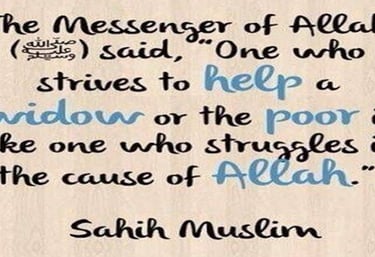 The Messenger of Allah
(ﷺ) said, "One who
strives to help a
widow or the poor i
ke one who struggles i
the cause of Allah."
Sahih Muslim